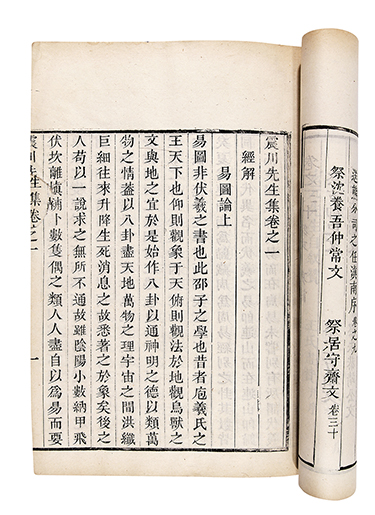 送熊分司之任滇南序 卷之九
祭沈養吾仲常文
祭居守齋文 卷三十
震川先生集卷之一
經解
易圖論上
易圖非伏羲之書也此邵子之學也昔者庖羲氏之
王天下也仰則觀象于天俯則觀法於地觀鳥獸之
文與地之宜於是始作八卦以通神明之德以類萬
物之情蓋以八卦盡天地萬物之理宇宙之間洪纖
巨細往來升降生死消息之故悉著之於象矣後之
人苟以一說求之無所不通故雖陰陽小數納甲飛
伏坎離塡補卜數隻偶之類人人盡自以爲易而要
震川先生集卷之一
一